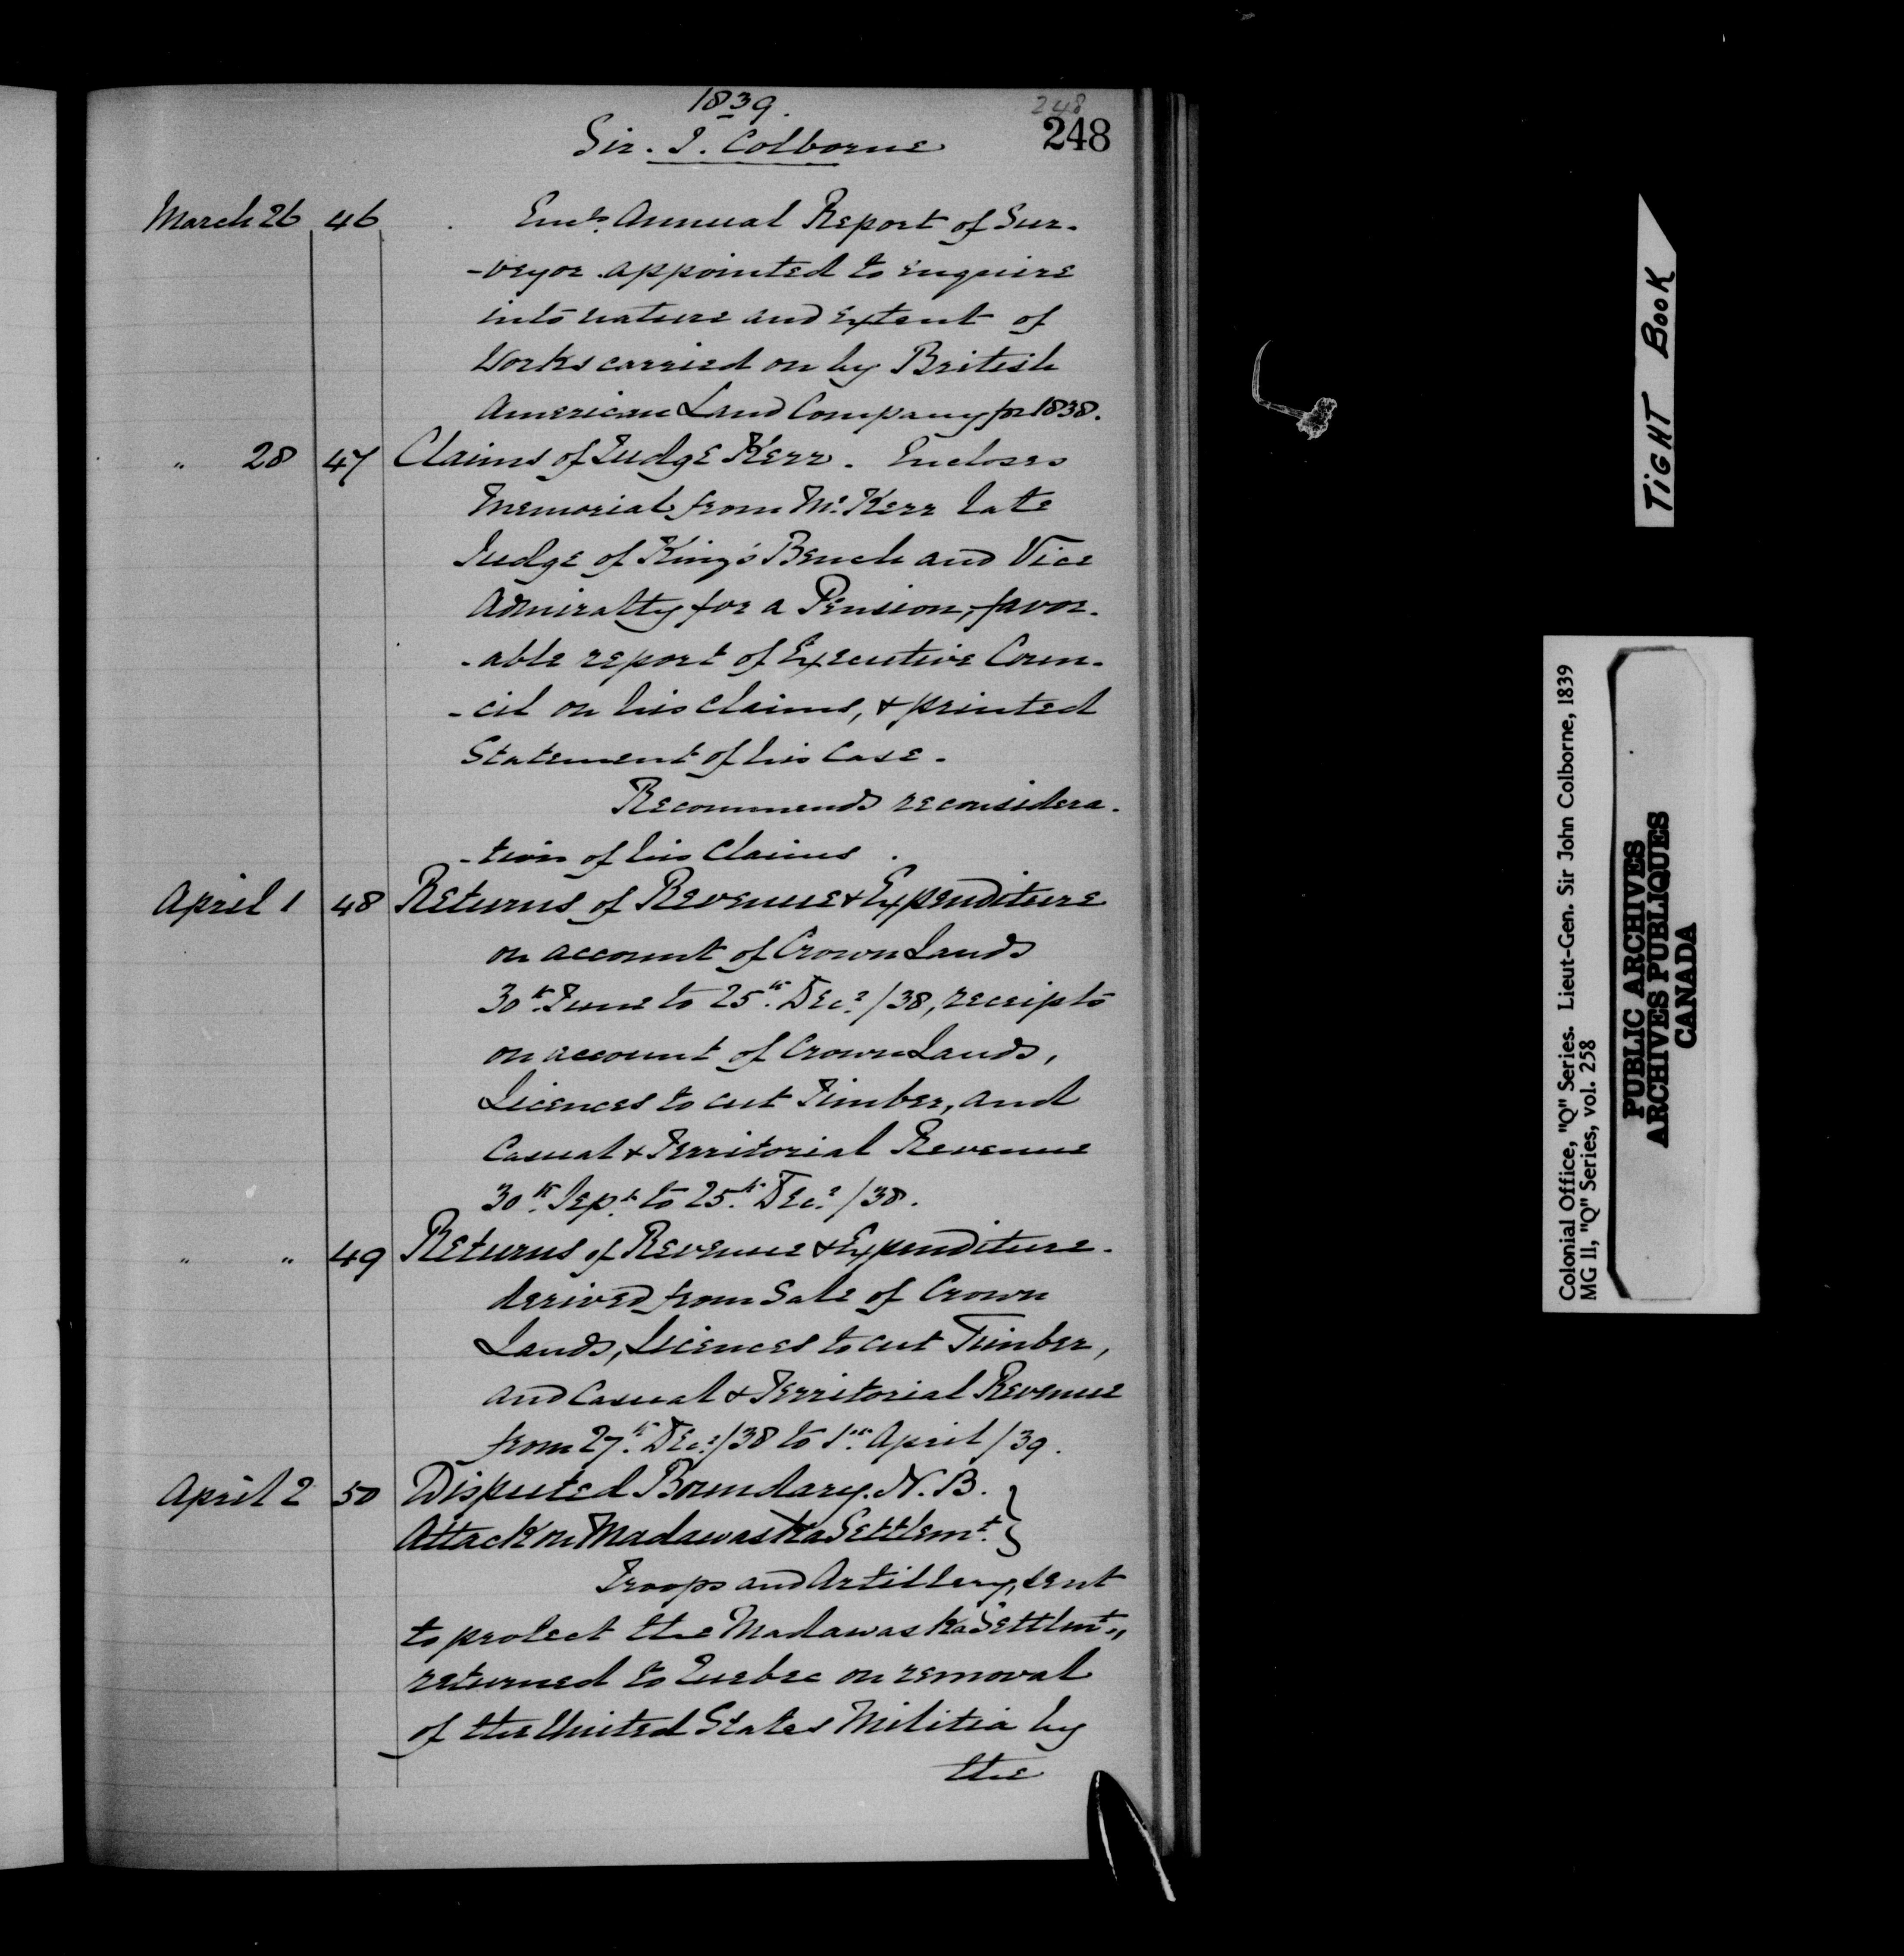 1839.
248
Sir. J. Colborne
248
March 26 46 Encls. Annual Report of Sur-
-veyor appointed to enquire
into nature and extent of
Works carried on by British
American Land Company for 1838.
" 28 47 Claims of Judge Kerr. Encloses
Memorial from Mr. Kerr late
Judge of King's Bench and Vice
Admiralty for a Pension, favor-
-able report of Executive Coun-
-cil on his claims, & printed
Statement of his Case.
Recommends reconsidera-
-tion of his Claims.
April 1 48 Returns of Revenue & Expenditure
on account of Crown Lands
30th. June to 25th. Decr. /38, receipts
on account of Crown Lands,
Licences to cut Timber, and
Casual & Territorial Revenue
30th. Sept. to 25th. Decr. /38.
" " 49 Returns of Revenue & Expenditure.
derived from Sale of Crown
Lands, Licences to cut Timber,
and Casual & Territorial Revenue
from 27th. Decr. /38 to 1st. April /39.
April 2 50 Disputed Boundary. N.B. }
Attack on Madawaska Settlemt. }
Troops and Artillery, sent
to protect the Madawaska Settlmt.,
returned to Quebec on removal
of the United States Militia by
the
TIGHT BOOK
Colonial Office, "Q" Series. Lieut-Gen. Sir John Colborne, 1839
MG 11, "Q" Series, vol. 258
PUBLIC ARCHIVES
ARCHIVES PUBLIQUES
CANADA